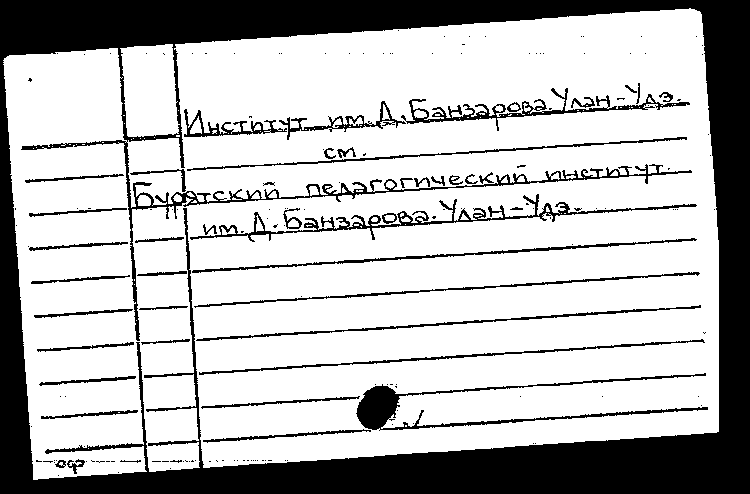 Институт им. Д. Банзарова. Улан-Удэ.
см.
Бурятский педагогический институт
им. Д. Банзарова. Улан-Удэ.